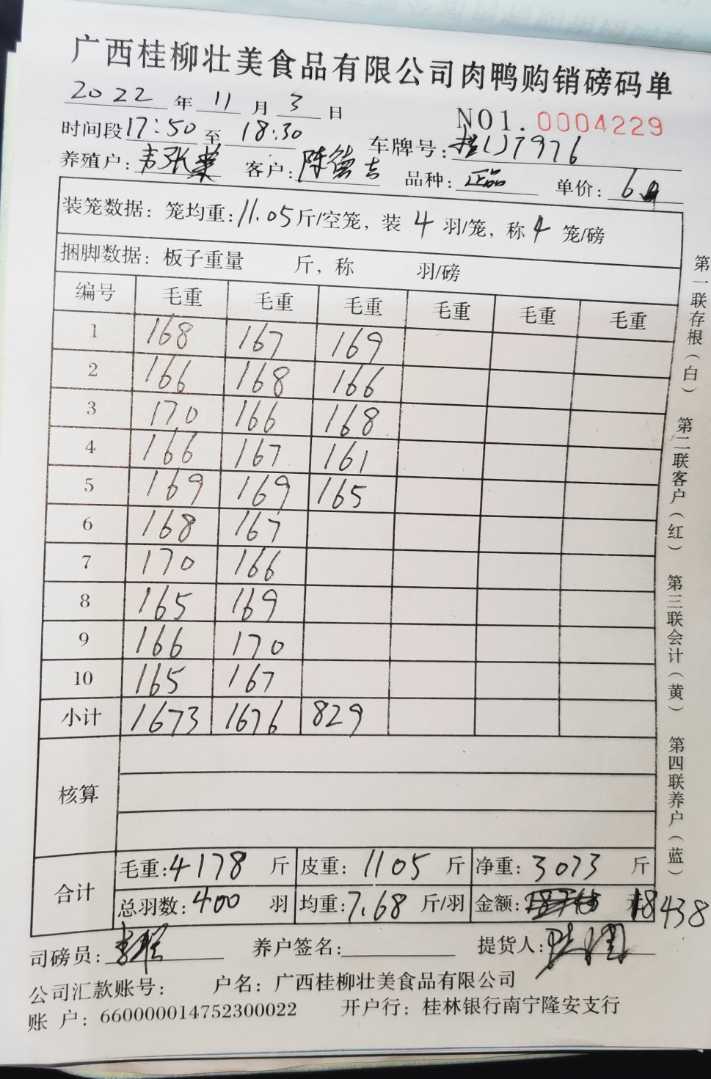 广西桂柳壮美食品有限公司肉鸭购销磅码单
2022 年 11 月 3 日
NO1. 0004229
时间段 17:50 至 18:30 车牌号:
养殖户: 客户: 陈德吉 品种: 正品 单价: 6
装笼数据: 笼均重: 11.05 斤/空笼, 装 4 羽/笼, 称 4 笼/磅
捆脚数据: 板子重量 斤, 称 羽/磅
编号 毛重 毛重 毛重 毛重 毛重 毛重
1 168 167 169
2 166 168 166
3 170 166 168
4 166 167 161
5 169 169 165
6 168 167
7 170 166
8 165 169
9 166 170
10 165 167
小计 1673 1676 829
核算
合计
毛重: 4178 斤 皮重: 1105 斤 净重: 3073 斤
总羽数: 400 羽 均重: 7.68 斤/羽 金额: 元 18438
司磅员: 养户签名: 提货人:
公司汇款账号: 户名: 广西桂柳壮美食品有限公司
账 户: 660000014752300022 开户行: 桂林银行南宁隆安支行
第一联存根(白) 第二联客户(红) 第三联会计(黄) 第四联养户(蓝)